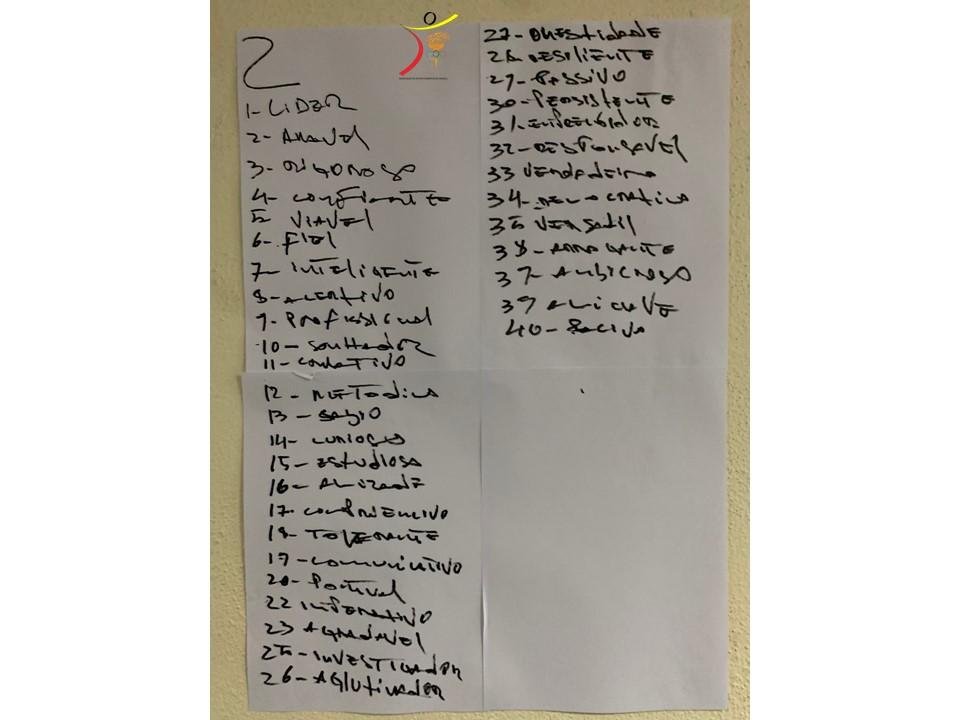 2
1- LiDER
2- Amavel
3- Rigoroso
4- confiante
5- ViAVEl
6- FiEl
7- inteligente
8- acertivo
9- Profissional
10- Sonhador
11- combativo
12- METodico
13- sabio
14- curioço
15- Estudioso
16- Amizade
17- compriencivo
18- TolerantE
19- comunicativo
20- Pontual
22 imperativo
23 AgradavEl
25- inVESTigador
26- Aglutinador
27- onestidade
28- resiliente
29- Passivo
30- Persistente
31- Empreendedor
32- Responsavel
33 Verdadeiro
34- Democrativo
35 Versatil
38- arrogante
37- Ambicioso
39
40-